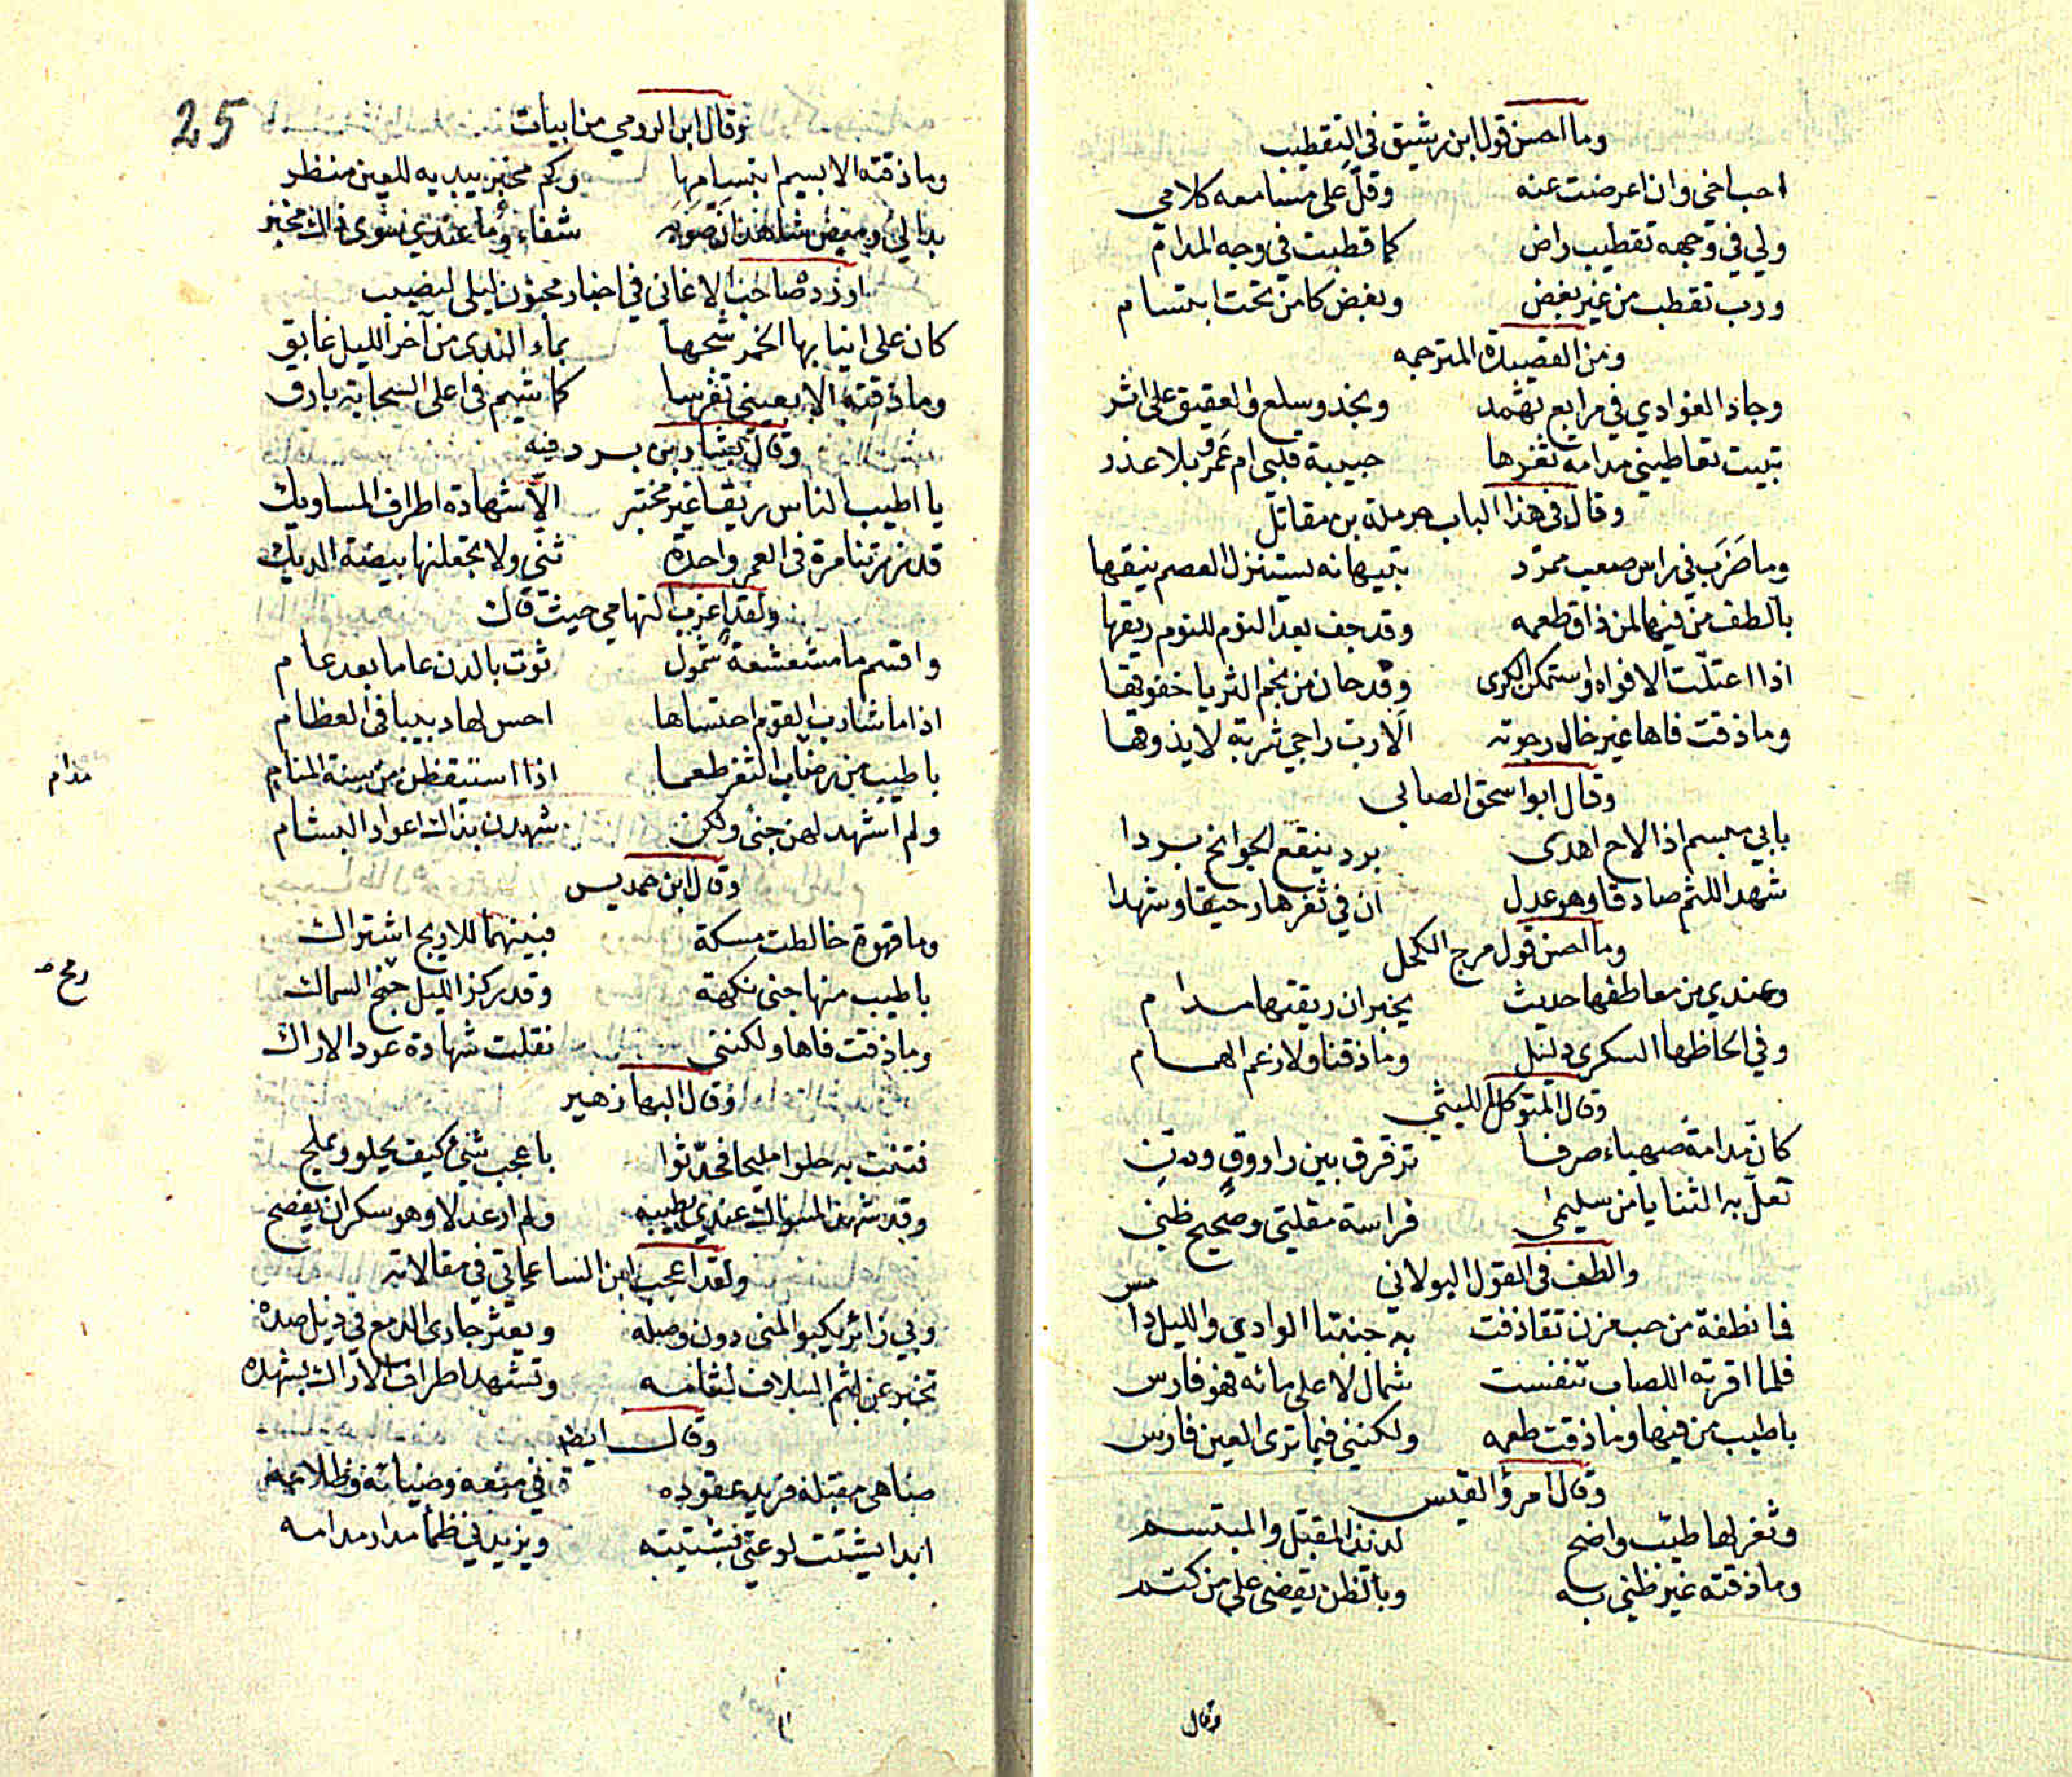 وما احسن قول ابن رشيق في التقطيب
احب اخي وان اعرضت عنه وقلّ على مسامعه كلامي
ولي في وجهه تقطيب راض كما قطبت في وجه المدام
ورب تقطب من غير بغض وبغض كامن تحت ابتسام
ومن القصيدة المترجمه
وجاد الغوادي في مرابع ثهمد ونجد وسلع والعقيق على اثر
تبيت تعاطيني مدامة ثغرها حبيبة قلبي ام عمرو بلا عذر
وقال في هذا الباب حرملة بن مقاتل
وما ضَرَب في راس صعب ممرّد بتيهانه يستنزل العصم نيقها
بالطف من فيها لمن ذاق طعمه وقد جف بعد النوم للنوم ريقها
اذا اعتلّت الافواه واستمكن الكرى وقد حان من نجم الثريا خفوقها
وما ذقت فاها غير خال رجوته الا رب راجي شربة لا يذوقها
وقال ابو اسحق الصابي
بابي مبسم اذا لاح اهدى برد ينقع الجوانح بردا
شهد اللثم صادقا وهو عدل ان في ثغرها رحيقا وشهدا
وما احسن قول مرج الكحل
وعندي من معاطفها حديث يخبر ان ريقتها مدام
وفي الحاظها السكرى دليل وما ذقنا ولا زعم الهمام
وقال المتوكل الليثي
كان مدامة صهباء صرفا ترقرق بين راووق ودن
تعلّ به الثنايا من سليمى فراسة مقلتي وصحيح ظني
والطف في القول البولاني
فما نطفة من حب مزن تقاذفت به جنبتا الوادي والليل دامس
فلما اقرته اللصاب تنفست شمال لا على مائه فهو قارس
باطيب من فيها وما ذقت طعمه ولكنني فيما ترى العين فارس
وقال امرؤ القيس
وثغر لها طيّب واضح لذيذ المقبّل والمبتسم
وما ذقته غير ظني به وبالظن يقضى على من كتم
وقال
25
وقال ابن الرومي من ابيات
وما ذقته الا بشيم ابتسامها وكم مخبر يبديه للعين منظر
بدا لي وميض شاهد ان صوبه شفاء وما عندي سوى ذاك مخبر
اورده صاحب الاغاني في اخبار مجنون ليلى لنصيب
كان على انيابها الخمر شجها بماء الندى من آخر الليل غابق
وما ذقته الا بعيني تفرسا كما شيم في اعلى السحابة بارق
وقال بشار بن برد فيه
يا اطيب الناس ريقا غير مختبر الّا شهادة اطراف المساويك
قد زرتنا مرة في العمر واحدة ثنّي ولا تجعلنها بيضة الديك
ولقد اغرب التهامي حيث قال
واقسم ما مشعشعة شمول ثوت بالدن عاما بعد عام
اذا ما شارب القوم احتساها احس لها دبيبا في العظام
باطيب من رضاب الثغر طعما اذا استيقظن من سنة المنام
مدام
ولم اشهد لهن جنى ولكن شهدن بذاك اعواد البشام
وقال ابن حمديس
وما قهوة خالطت مسكة فبينهما للاريج اشتراك
باطيب منها جنى نكهة وقد ركز الليل جنح السماك
رمح
وما ذقت فاها ولكنني نقلت شهادة عود الاراك
وقال البها زهير
فتنت به حلوا مليحا فحدّثوا باعجب شيء كيف يحلو ويملح
وقد شهد المسواك عندي بطيبه ولم ار عدلا وهو سكران يفضح
ولقد اعجب ابن الساعاتي في مقالاته
وبي زائر يكبو المنى دون وصله ويعثر جاري الدمع في ذيل صده
تخبر عن لثم السلاف لثامه وتشهد اطراف الاراك بشهده
وقال ايضا
ابدا يشتت لوعتي تشتيته ويزيدني ظمأ مدار مدامه